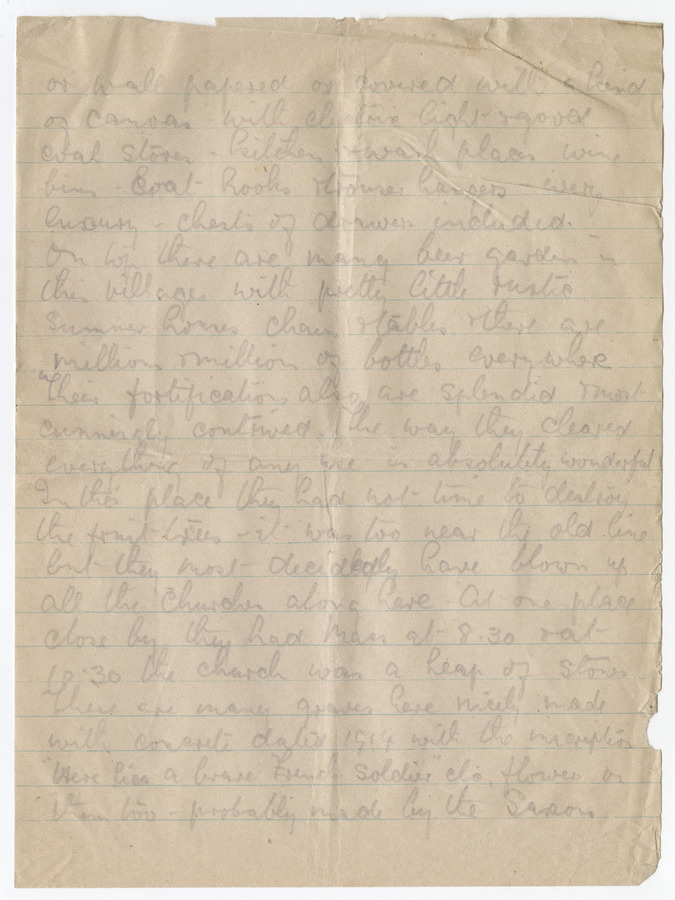 or wall papered or covered with a kind
of canvas with electric light & good
coal stoves - kitchen & wash places wine
bins - Coat hooks & trouser hangers every
luxury - chests of drawers included.
On top there are many beer gardens in
the villages with pretty little rustic
Summer houses chairs & tables & there are
millions & millions of bottles everywhere
Their fortifications also are splendid & most
cunningly contrived. The way they cleared
everything of any use is absolutely wonderful
In this place they had not time to destroy
the fruit trees - it was too near the old line
but they most decidedly have blown up
all the Churches along here. At one place
close by they had Mass at 8.30 & at
10.30 the church was a heap of stones
There are many graves here nicely made
with concrete dated 1914 with the inscription
"Here lies a brave French Soldier" etc, flowers on
them too - probably made by the Saxons